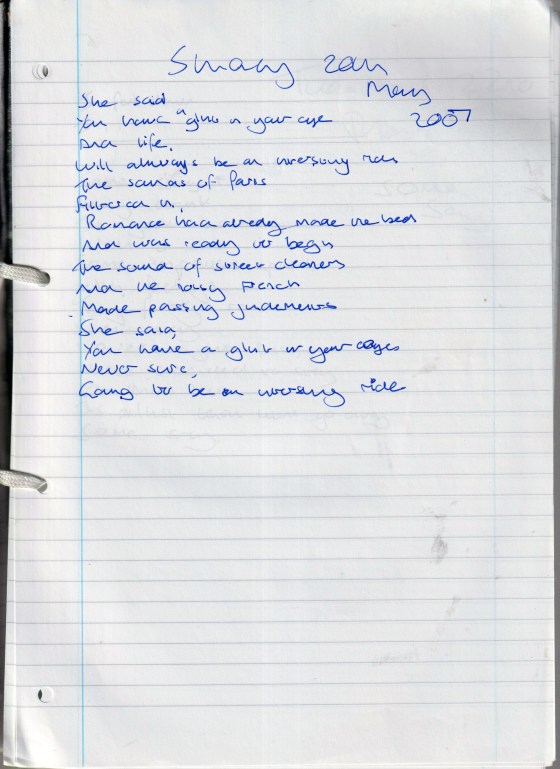 Sunday 20th
May
2007
She said
You have a glint in your eye
And life.
Will always be an interesting ride
The sounds of Paris
Filtered in,
Romance had already made the bed
And was ready to begin
The sound of street cleaners
And the lousy French
Made passing judements
She said,
You have a glint in your eyes
Never sure,
Going to be an interesting ride